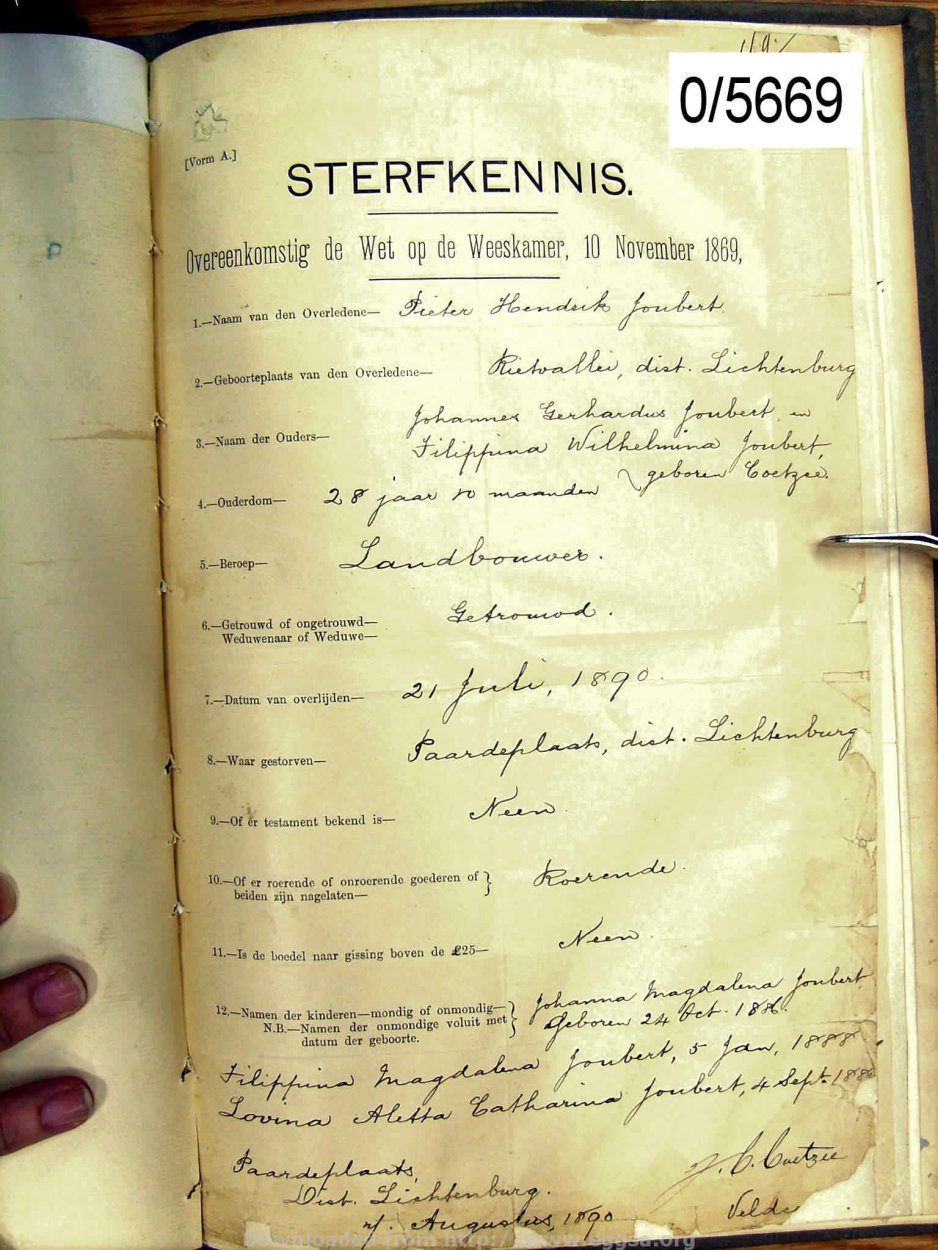 0/5669
[Vorm A.]
STERFKENNIS.
Overeenkomstig de Wet op de Weeskamer, 10 November 1869,
1.—Naam van den Overledene— Pieter Hendrik Joubert.
2.—Geboorteplaats van den Overledene— Rietvallei, dist. Lichtenburg
Johannes Gerhardus Joubert, en
3.—Naam der Ouders— Filippina Wilhelmina Joubert,
geboren Coetzee.
4.—Ouderdom— 28 jaar 10 maanden
5.—Beroep— Landbouwer.
6.—Getrouwd of ongetrouwd— Getrouwd.
Weduwenaar of Weduwe—
7.—Datum van overlijden— 21 Juli, 1890.
8.—Waar gestorven— Paardeplaats, dist. Lichtenburg
9.—Of er testament bekend is— Neen.
10.—Of er roerende of onroerende goederen of } Roerende.
beiden zijn nagelaten—
11.—Is de boedel naar gissing boven de £25— Neen.
12.—Namen der kinderen—mondig of onmondig— } Johanna Magdalena Joubert
N.B.—Namen der onmondige voluit met Geboren 24 Oct. 1886.
datum der geboorte.
Filippina Magdalena Joubert, 5 Jan, 1888
Lovina Aletta Catharina Joubert, 4 Sept.
Paardeplaats, Coetzee
Dist. Lichtenburg. Veldc
Augustus, 1890
Downloaded from http://www.eggsa.org